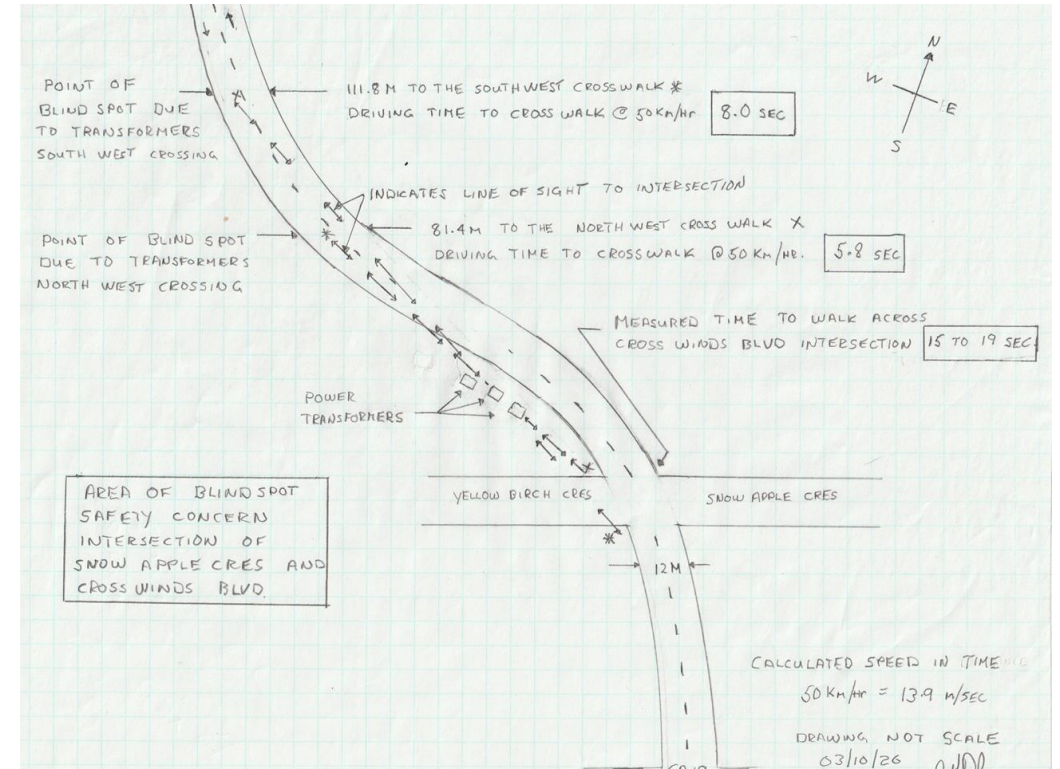 POINT OF
BLIND SPOT DUE
TO TRANSFORMERS
SOUTH WEST CROSSING
111.8 M TO THE SOUTHWEST CROSSWALK *
DRIVING TIME TO CROSS WALK @ 50 Km/Hr 8.0 SEC
N
W
E
S
INDICATES LINE OF SIGHT TO INTERSECTION
POINT OF BLIND SPOT
DUE TO TRANSFORMERS
NORTH WEST CROSSING
81.4 M TO THE NORTH WEST CROSS WALK X
DRIVING TIME TO CROSSWALK @ 50 Km/HR. 5.8 SEC
MEASURED TIME TO WALK ACROSS
CROSS WINDS BLVD INTERSECTION 15 TO 19 SEC.
POWER
TRANSFORMERS
YELLOW BIRCH CRES
SNOW APPLE CRES
AREA OF BLINDSPOT
SAFETY CONCERN
INTERSECTION OF
SNOW APPLE CRES AND
CROSS WINDS BLVD.
12 M
CALCULATED SPEED IN TIME
50 Km/Hr = 13.9 m/SEC
DRAWING NOT SCALE
03/10/26